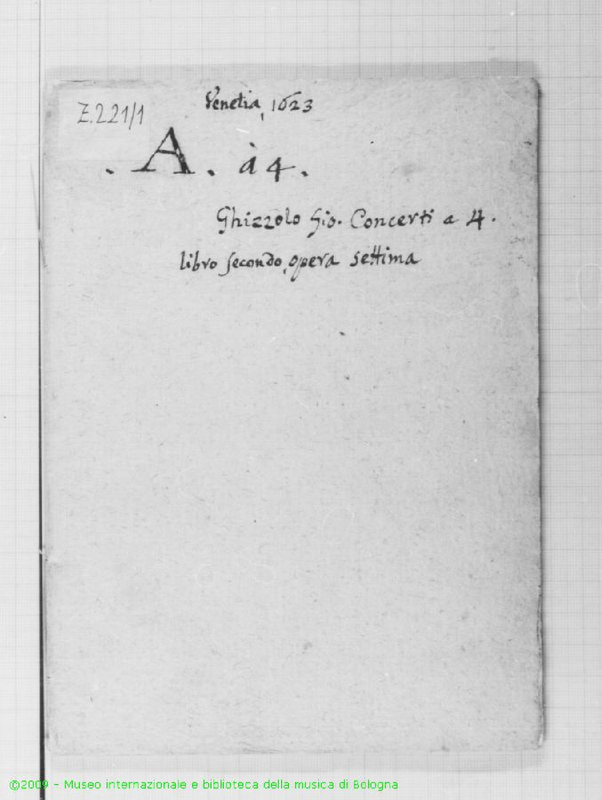 Venetia, 1623
Z.221/1
. A . à 4 .
Ghizzolo Gio. Concerti a 4.
libro secondo, opera settima
©2009 - Museo internazionale e biblioteca della musica di Bologna